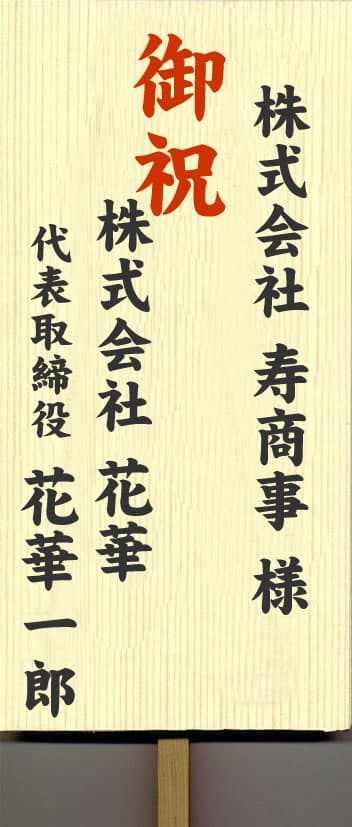 御祝
株式会社 寿商事 様
株式会社 花華
代表取締役 花華一郎